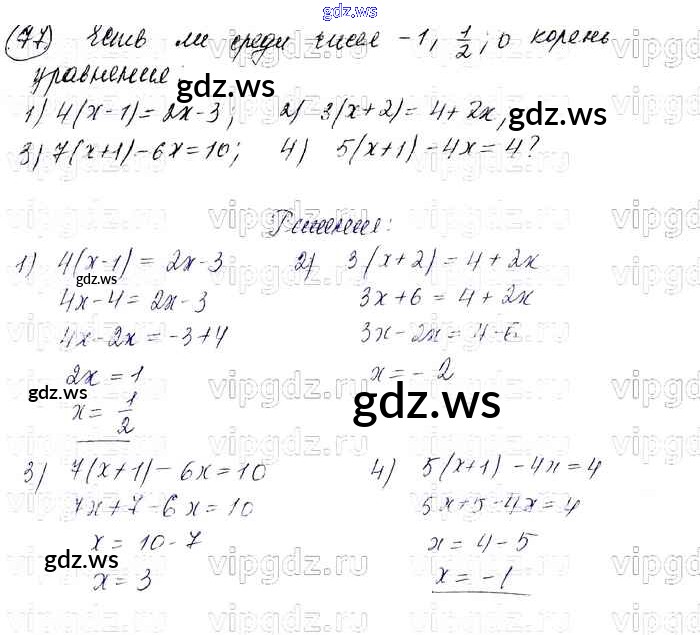 gdz.ws
(77) Есть ли среди чисел -1, 1/2; 0 корень
уравнения:
1) 4(x-1) = 2x-3; 2) 3(x+2) = 4+2x,
3) 7(x+1)-6x=10; 4) 5(x+1)-4x=4?
gdz.ws
gdz.ws
vipgdz.ru
Решение:
1) 4(x-1) = 2x-3
4x-4 = 2x-3
4x-2x = -3+4
2x = 1
x = 1/2
2) 3(x+2) = 4+2x
3x+6 = 4+2x
3x-2x = 4-6
x = -2
gdz.ws
gdz.ws
gdz.ws
3) 7(x+1)-6x=10
7x+7-6x=10
x = 10-7
x = 3
4) 5(x+1)-4x=4
5x+5-4x=4
x = 4-5
x = -1
gdz.ws
vipgdz.ru